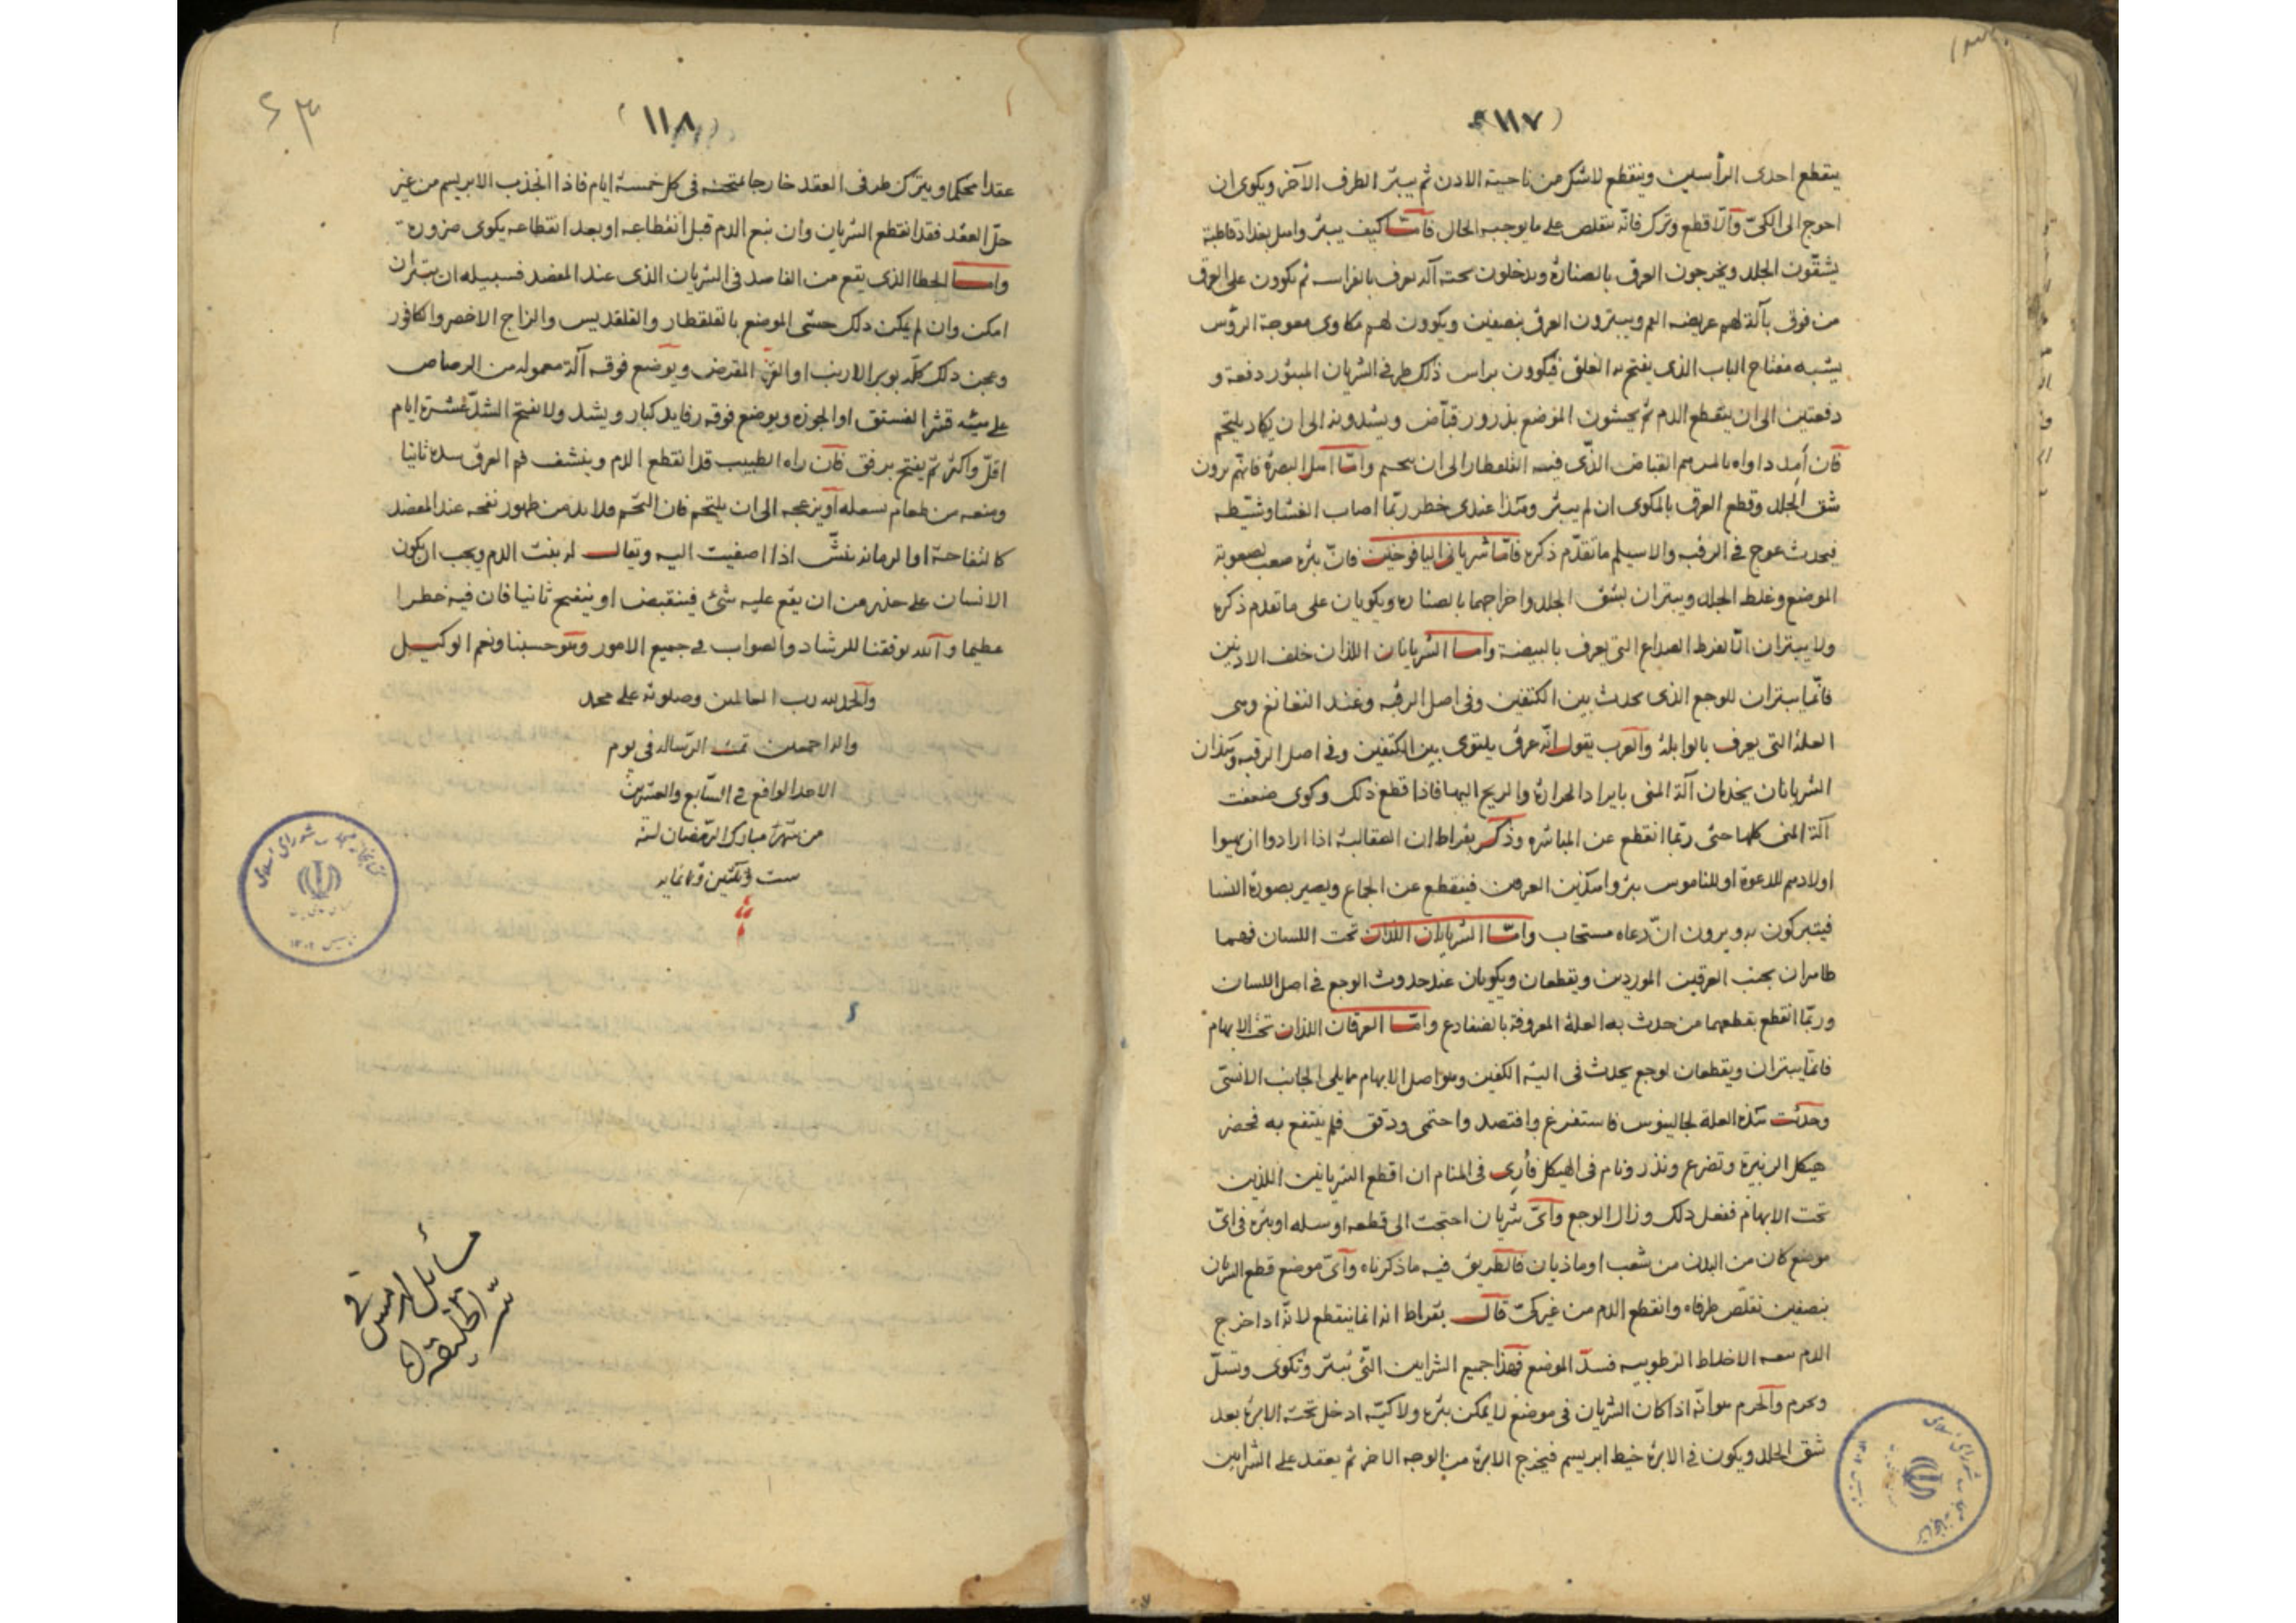 (۱۱۷)
ينقطع احدى الرأسين وينقطع لاشك من ناحية الاذن ثم يبتر الطرف الآخر ويكوى ان
احوج الى الكىّ والّا قطع وترك فانّه يتقلص على ما يوجبه الحال فامّا كيف يبتر واهل بغداد قاطبة
يشقّون الجلد ويخرجون العرق بالصنارة ويدخلون تحته آلة يعرف بالفراسه ثم يكوون على العرق
من فوق بآلة لهم عريضه الفم ويبترون العرق بنصفين ويكوون لهم مكاوى معوجة الرؤس
يشبه مفتاح الباب الذى يفتح به الغلق فيكوون براس ذلك طرفى الشريان المبتور دفعة و
دفعتين الى ان ينقطع الدم ثم يحشون الموضع بذرور قبّاض ويشدونه الى ان يكاد يلتحم
فان أمد داواه بالمرهم القباض الذّى فيه القلقطار الى ان يلحم وامّا اهل البصرة فانهم يرون
شق الجلد وقطع العرق بالمكوى ان لم يبتر وهذا عندى خطر ربّما اصاب الغشا وشيّطه
فيحدث عوج فى الرقبه والاسيلم ما تقدّم ذكره فامّا شريانى اليافوخين فانّ بتره صعب لصعوبة
الموضع وغلظ الجلد ويبتران بشق الجلد واخراجهما بالصناره ويكويان على ما تقدم ذكره
ولا يبتران الّا لفرط الصداع التى يعرف بالبيضة وامــا الشريانان اللذان خلف الاذنين
فانّما يبتران للوجع الذى يحدث بين الكتفين وفى اصل الرقبه وعند النغانغ وهى
العلة التى يعرف بالوابلة والعرب يقول انّه عرق يلتوى بين الكتفين وفى اصل الرقبه وهذان
الشريانان يخدمان آلة المنى بايراد الحرارة والريح اليها فاذا قطع ذلك وكوى ضعفت
آلة المنى كلها حتى ربّما انقطع عن المباشره وذكر بقراط ان الصقالبة اذا ارادوا ان يهبوا
اولادهم للدعوة او للناموس بتروا هذين العرقين فينقطع عن الجماع ويصير بصورة النسا
فيتبركون به ويرون انّ دعاه مستجاب وامّــا الشريانان اللذان تحت اللسان فهما
ظاهران بجنب العرقين الموردين ويقطعان ويكويان عند حدوث الوجع فى اصل اللسان
وربّما انقطع بقطعهما من حدث به العلة المعروفة بالضفادع وامّــا العرقان اللذان تحت الابهام
فانّما يبتران ويقطعان لوجع يحدث فى الية الكفين وهو اصل الابهام مما يلى الجانب الانسى
وحدثت هذه العلة لجالينوس فاستفرغ وافتصد واحتمى ودقق فلم ينتفع به فحضر
هيكل الزنبرة وتضرع ونذر ونام فى الهيكل فأرى فى المنام ان اقطع الشريانين اللذين
تحت الابهام ففعل ذلك وزال الوجع وأىّ شريان احتجت الى قطعه او سله او بتره فى اىّ
موضع كان من البدن من شعب او ماذيان فالطريق فيه ما ذكرناه وأىّ موضع قطع الشريان
بنصفين تقلّص طرفاه وانقطع الدم من غير كىّ قالــ بقراط انه انما ينقطع لانّه اذا خرج
الدم معه الاخلاط الرطوبيه فسدّ الموضع فهذا جميع الشرايين التّى تبتر وتكوى وتسلّ
وتحرم والخرم هو انّه اذا كان الشريان فى موضع لا يمكن بتره ولا كيّه ادخل تحته الابرة بعد
شق الجلد ويكون فى الابرة خيط ابريسم فيخرج الابرة من الوجه الاخر ثم يعقد على الشرايين
(۱۱۸)
۶۳
عقدا محكما ويترك طرفى العقد خارجا تمتحنه فى كل خمسة ايام فاذا انجذب الابريسم من غير
حلّ العقد فقد انقطع الشريان وان نبع الدم قبل انقطاعه او بعد انقطاعه يكوى ضرورة
وامــا الخطا الذى يقع من الفاصد فى الشريان الذى عند المفصد فسبيله ان يبتر ان
امكن وان لم يمكن ذلك حشى الموضع بالقلقطار والقلقديس والزاج الاخضر والكافور
وعجن ذلك كلّه بوبر الارنب او القزّ المقرض ويوضع فوقه آلة معموله من الرصاص
على هيئه قشر الفستق او الجوزه ويوضع فوقه رفايد كبار ويشد ولا يفتح الشدّ عشرة ايام
اقلّ واكثر ثمّ يفتح برفق فان راه الطبيب قد انقطع الدم وينشف فم العرق سدّه ثانيا
ومنعه من طعام يسعله او يزعجه الى ان يلتحم فان التحم فلا بد من ظهور نفخه عند المفصد
كالتفاحة او الرمانه ينشّ اذا اصغيت اليه ويقالــ له بنت الدم ويجب ان يكون
الانسان على حذر من ان يقع عليه شئ فينقبض او ينفتح ثانيا فان فيه خطرا
عظيما والله يوفقنا للرشاد والصواب فى جميع الامور وهو حسبنا ونعم الوكيــل
والحمد لله رب العالمين وصلوته على محمد
واله اجمعين تمت الرّساله فى يوم
الاحد الواقع فى السّابع والعشرين
من شهر مبارك الرّمضان لسنة
ست وثلثين وثمانمايه
مسائل ارمس فى
سرّ الطبيعة